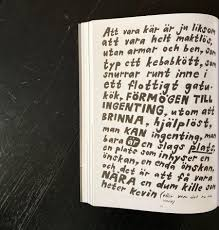 Att vara kär är ju liksom
att vara helt maktlös,
utan armar och ben, som
typ ett kebabkött, som
snurrar runt inne i
ett flottigt gatu-
kök, FÖRMÖGEN TILL
INGENTING, utom att
BRINNA, hjälplöst,
man KAN ingenting, man
bara är en slags plats,
en plats som inhyser en
önskan, en enda önskan,
och det är att få vara
NÄRA en dum kille som
heter Kevin